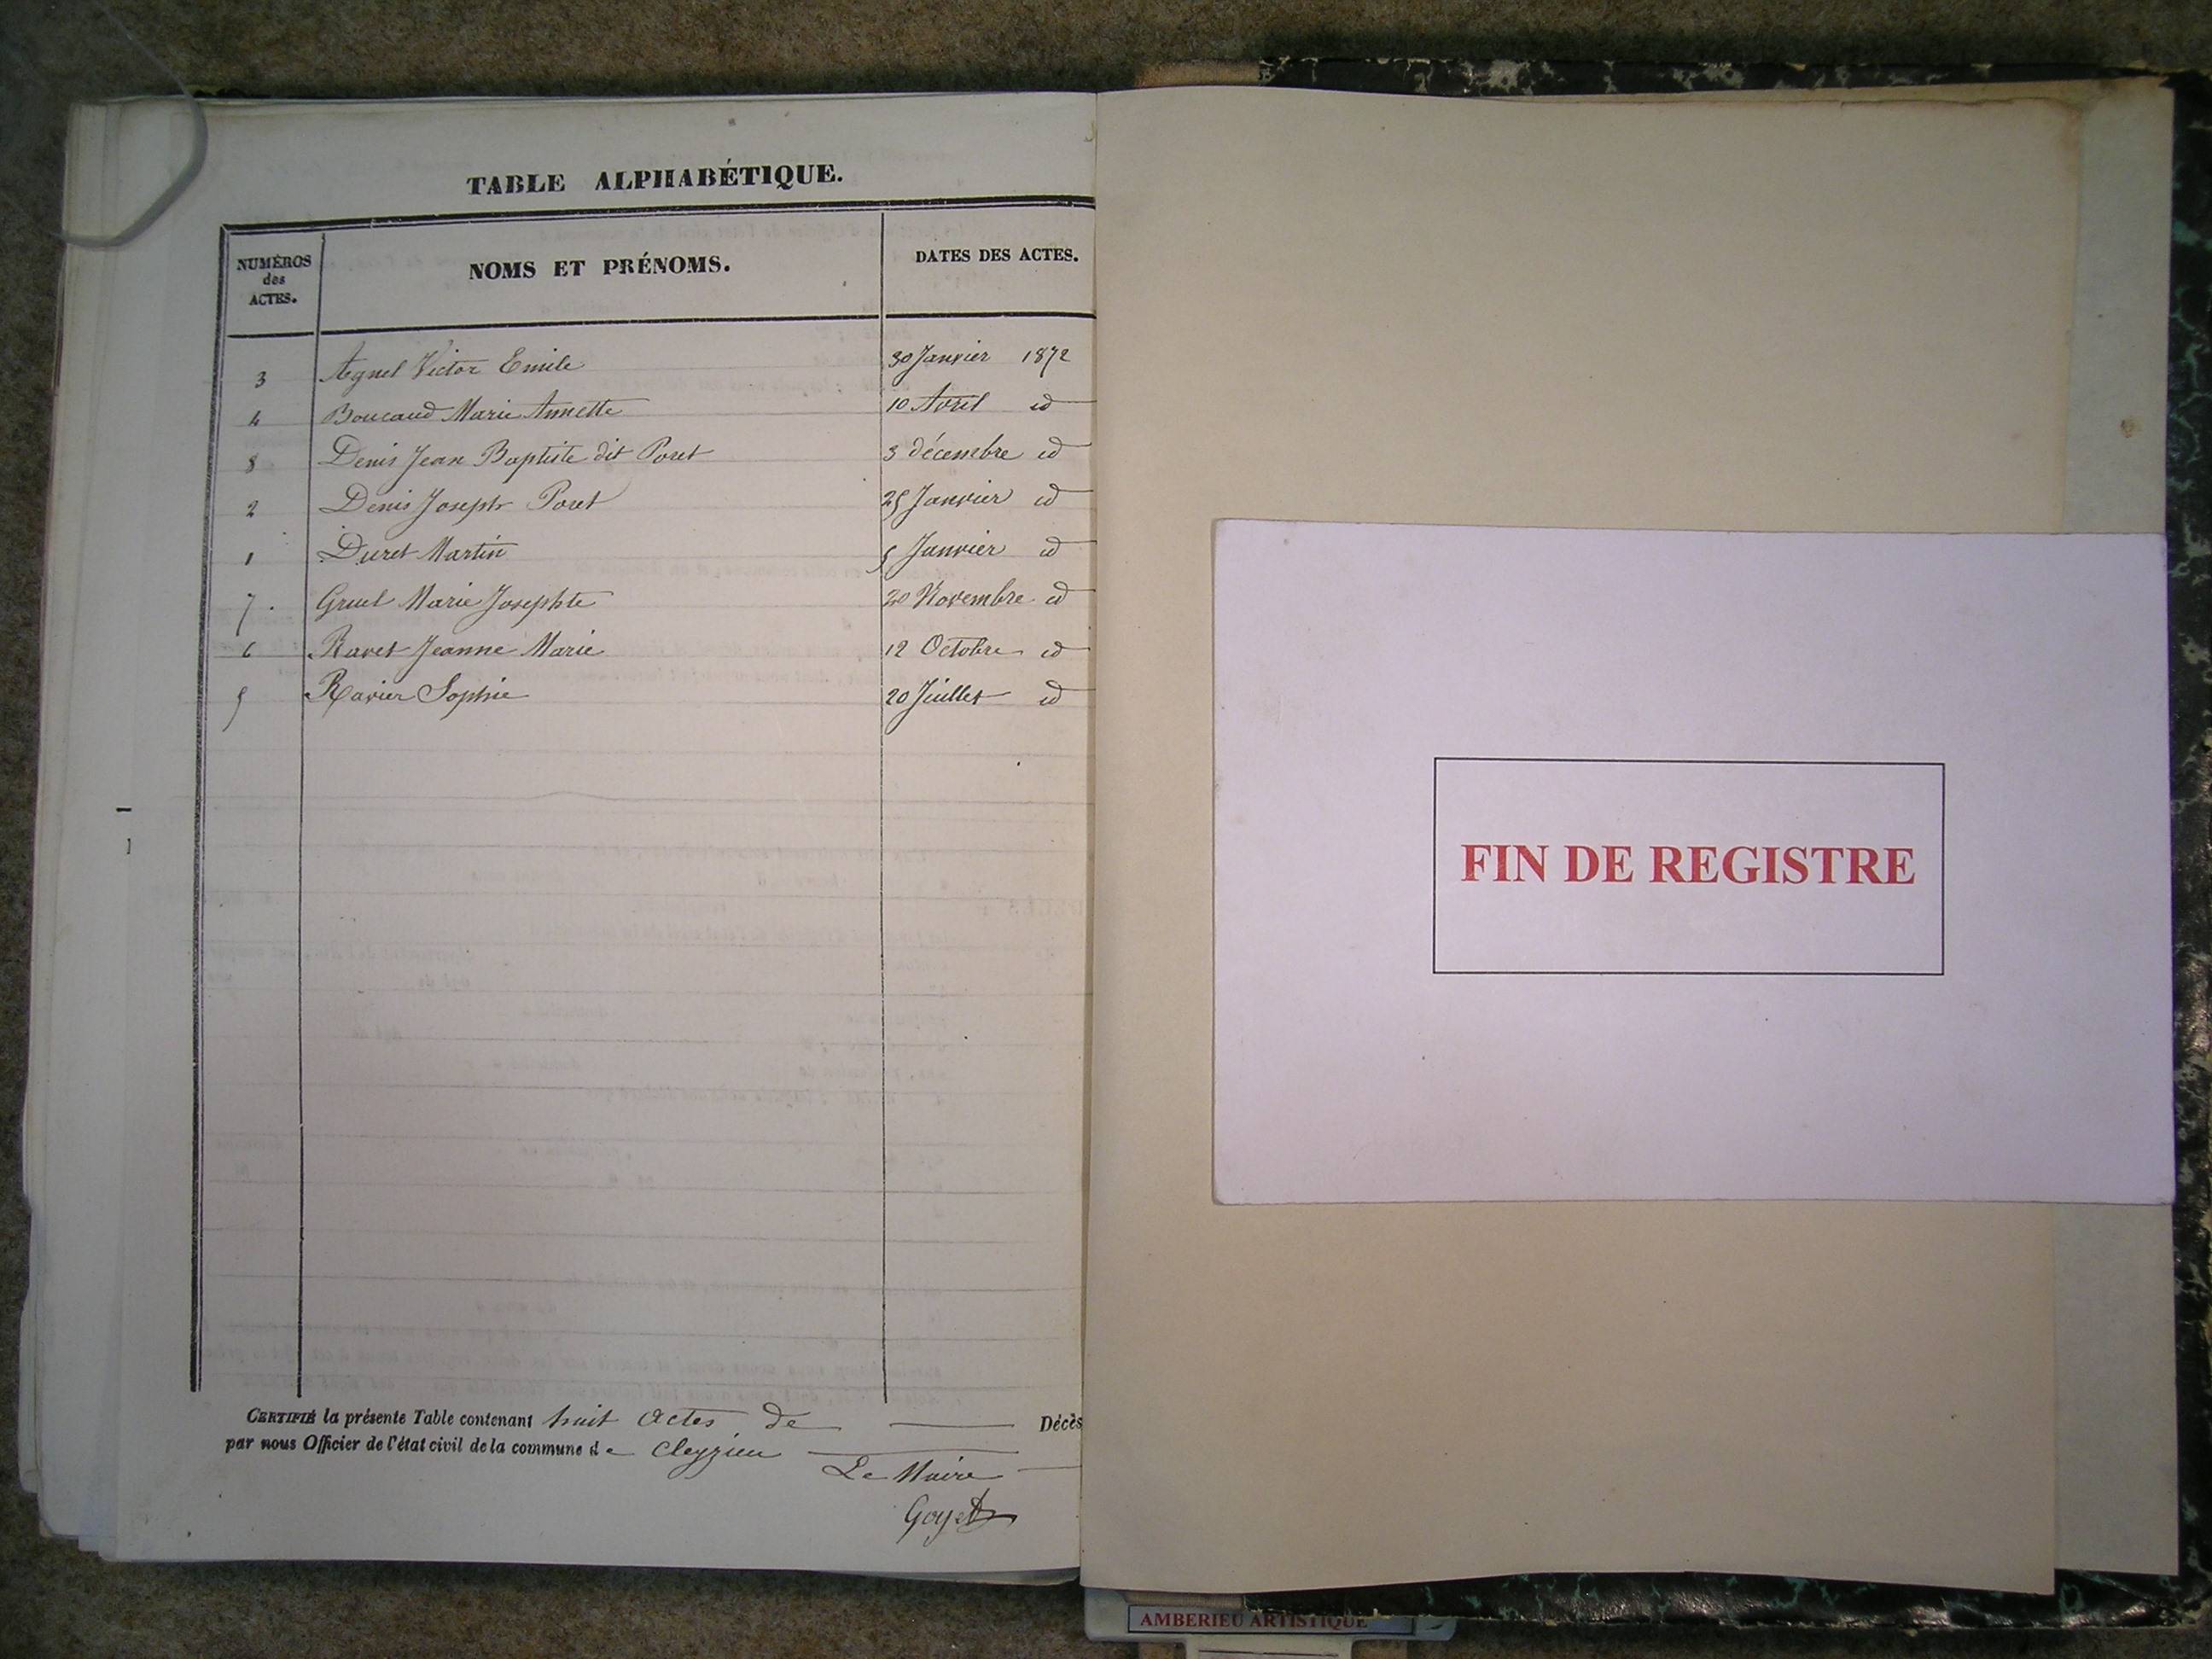 TABLE ALPHABÉTIQUE.
NUMÉROS
des
ACTES.
NOMS ET PRÉNOMS.
DATES DES ACTES.
3 Agnel Victor Emile 30 Janvier 1872
4 Boucaud Marie Annette 10 Avril id
8 Denis Jean Baptiste dit Poret 3 décembre id
2 Denis Joseph Poret 25 Janvier id
1 Duret Martin 5 Janvier id
7. Gruel Marie Josephte 20 Novembre id
6 Ravet Jeanne Marie 12 Octobre id
5 Ravier Sophie 20 Juillet id
CERTIFIÉ la présente Table contenant huit actes de Décès
par nous Officier de l'état civil de la commune de Cleyzieu
Le Maire
Goyet
FIN DE REGISTRE
AMBERIEU ARTISTIQUE